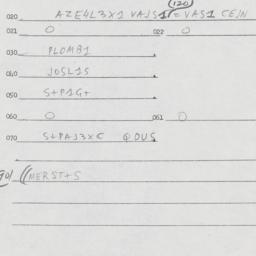 (120)
020 AZE4L3X1 VAJS1 = VAS1 CE/N
021 O 022 O
030 PLOMB1
040 JOSL1S
050 S+P1G+
060 O 061 O
070 S+PAJ3XC QOUS
90/ ((MERST+S